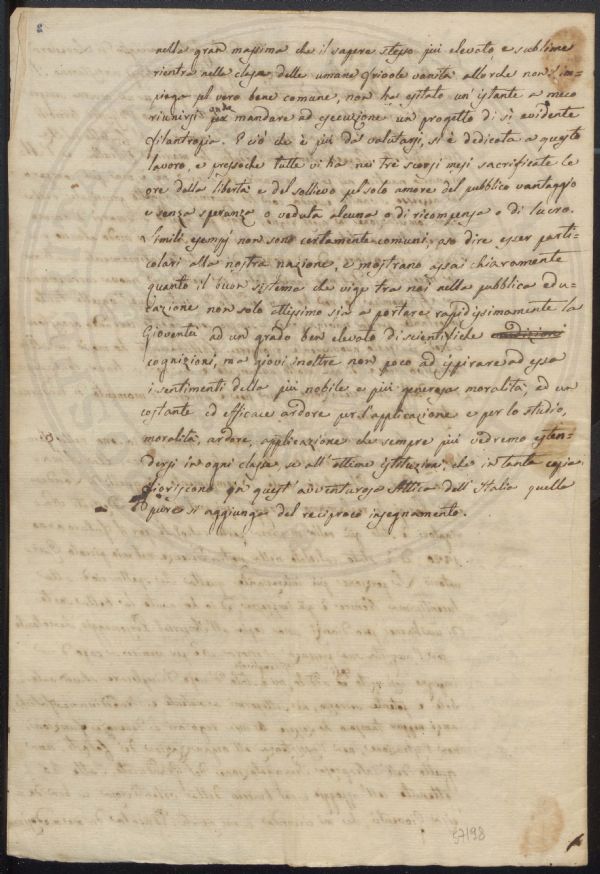 8
nella gran massima che il sapere stesso più elevato e sublime
rientra nelle classe delle umane frivole vanità allorchè non s'im=
piega pel vero bene comune, non ha esitato un'istante a meco
riunirsi onde per mandare ad esecuzione un progetto di sì evidente
filantropia. E ciò che è più da valutarsi, si è dedicata a questo
lavoro, e pressoche tutte vi ha nei trè scorsi mesi sacrificate le
ore della libertà e del sollievo pel solo amore del pubblico vantaggio
e senza speranza o veduta alcuna o di ricompensa o di lucro.
Simili esempj non sono certamente comuni, oso dire esser parti=
colari alla nostra nazione, e mostrano assai chiaramente
quanto il buon sistema che vige tra noi nella pubblica edu=
cazione non solo attissimo sia a portare rapidissimamente la
Gioventù ad un grado ben elevato di scientifiche
cognizioni, ma giovi inoltre non poco ad ispirare ad essa
i sentimenti della più nobile e più generosa moralità, ed un
costante ed efficace ardore per l'applicazione e per lo studio,
moralità, ardore, applicazione che sempre più vedremo esten=
dersi in ogni classe se all'ottime istituzioni, che in tanta copia
fioriscono in quest'avventurosa Attica dell'Italia quella
pure si aggiunga del reciproco insegnamento.
57198